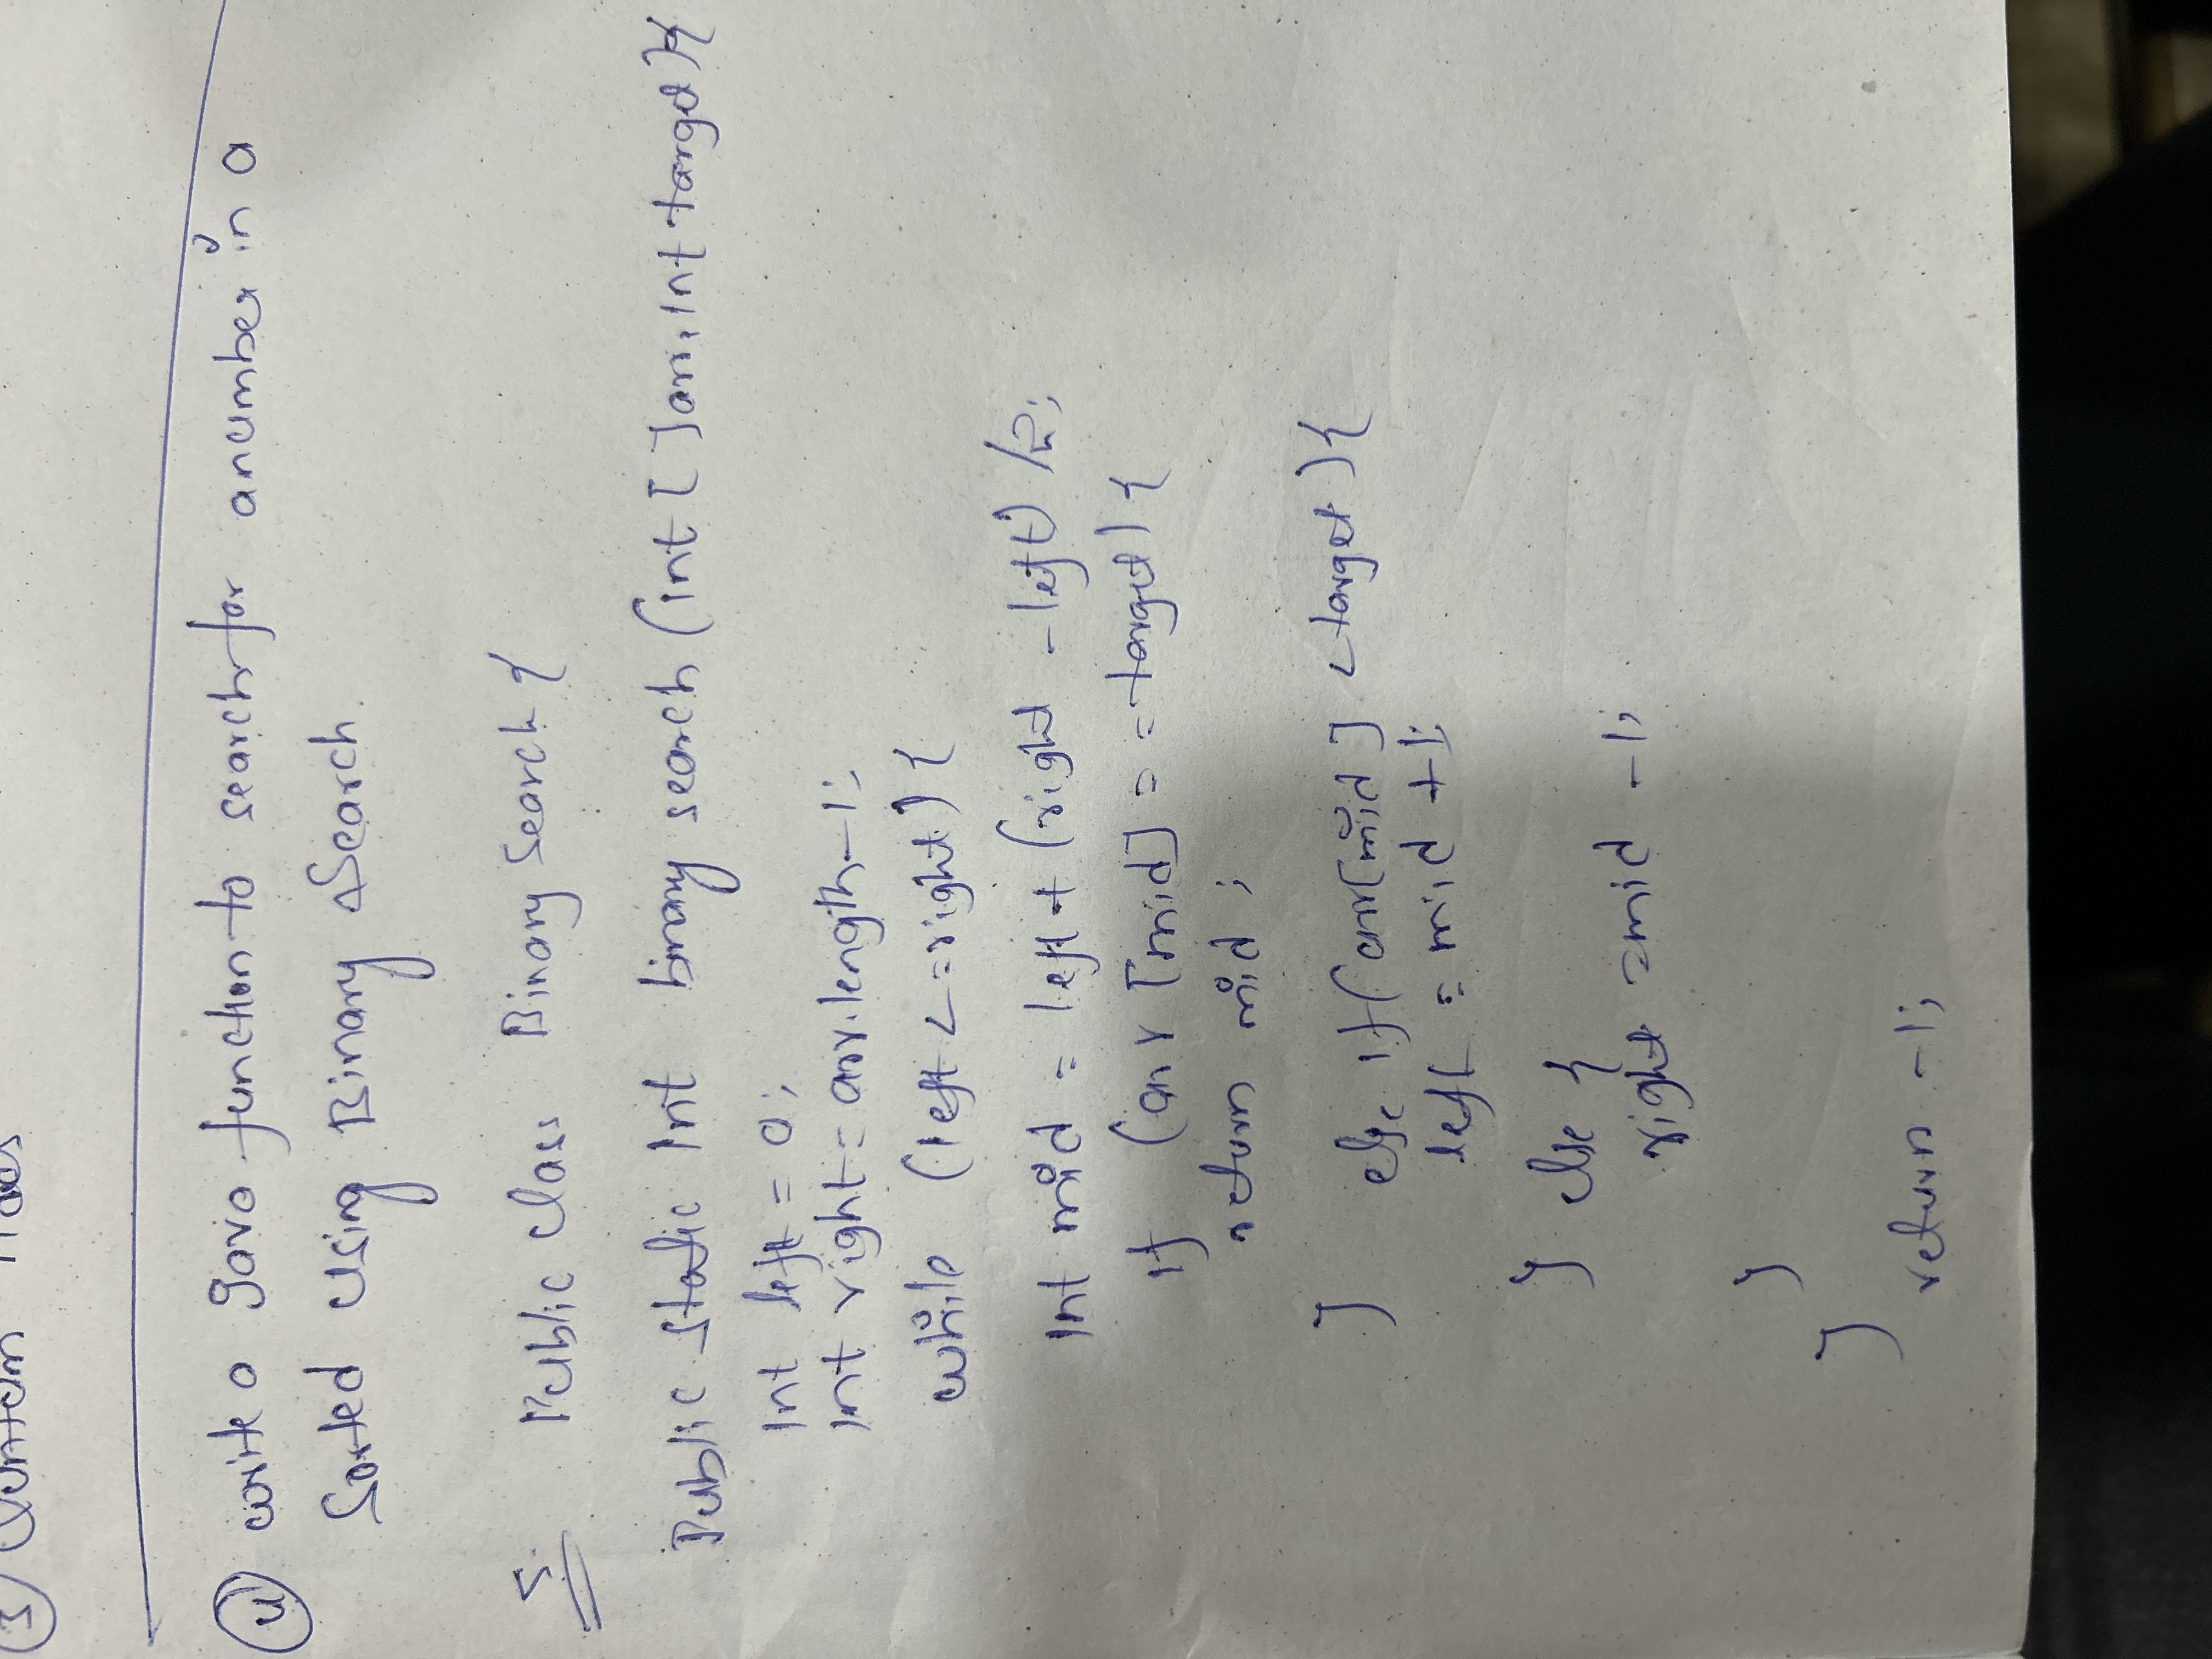 ③
④ write a Java function to search for a number in a
Sorted Using Binary Search.
S. Public class Binary Search {
Public static int binary search (int [ ] arr, int target) {
int left = 0;
int right = arr.length-1;
while (left <= right) {
int mid = left + (right - left) /2;
if (arr [mid] = = target) {
return mid ;
} else if (arr[mid] < target) {
left = mid +1;
} else {
right = mid -1;
}
}
return -1;